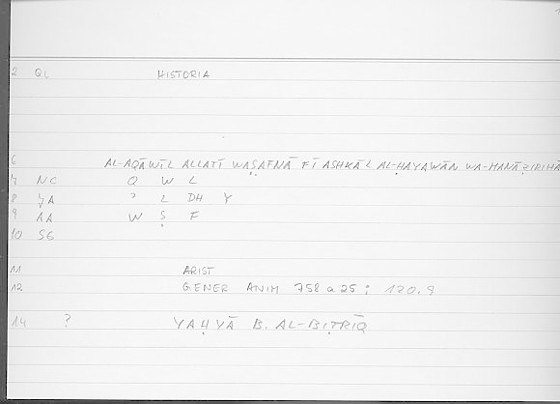 2 QL HISTORIA
6 AL-AQĀWĪL ALLATĪ WAṢAFNĀ FĪ ASHKĀL AL-ḤAYAWĀN WA-MANĀẒIRIHĀ
7 NC Q W L
8 ʾ L DH Y
9 AA W Ṣ F
10 SG
11 ARIST
12 GENER ANIM 758 a 25 ; 120.9
14 ? YAḤYĀ B. AL-BIṬRĪQ